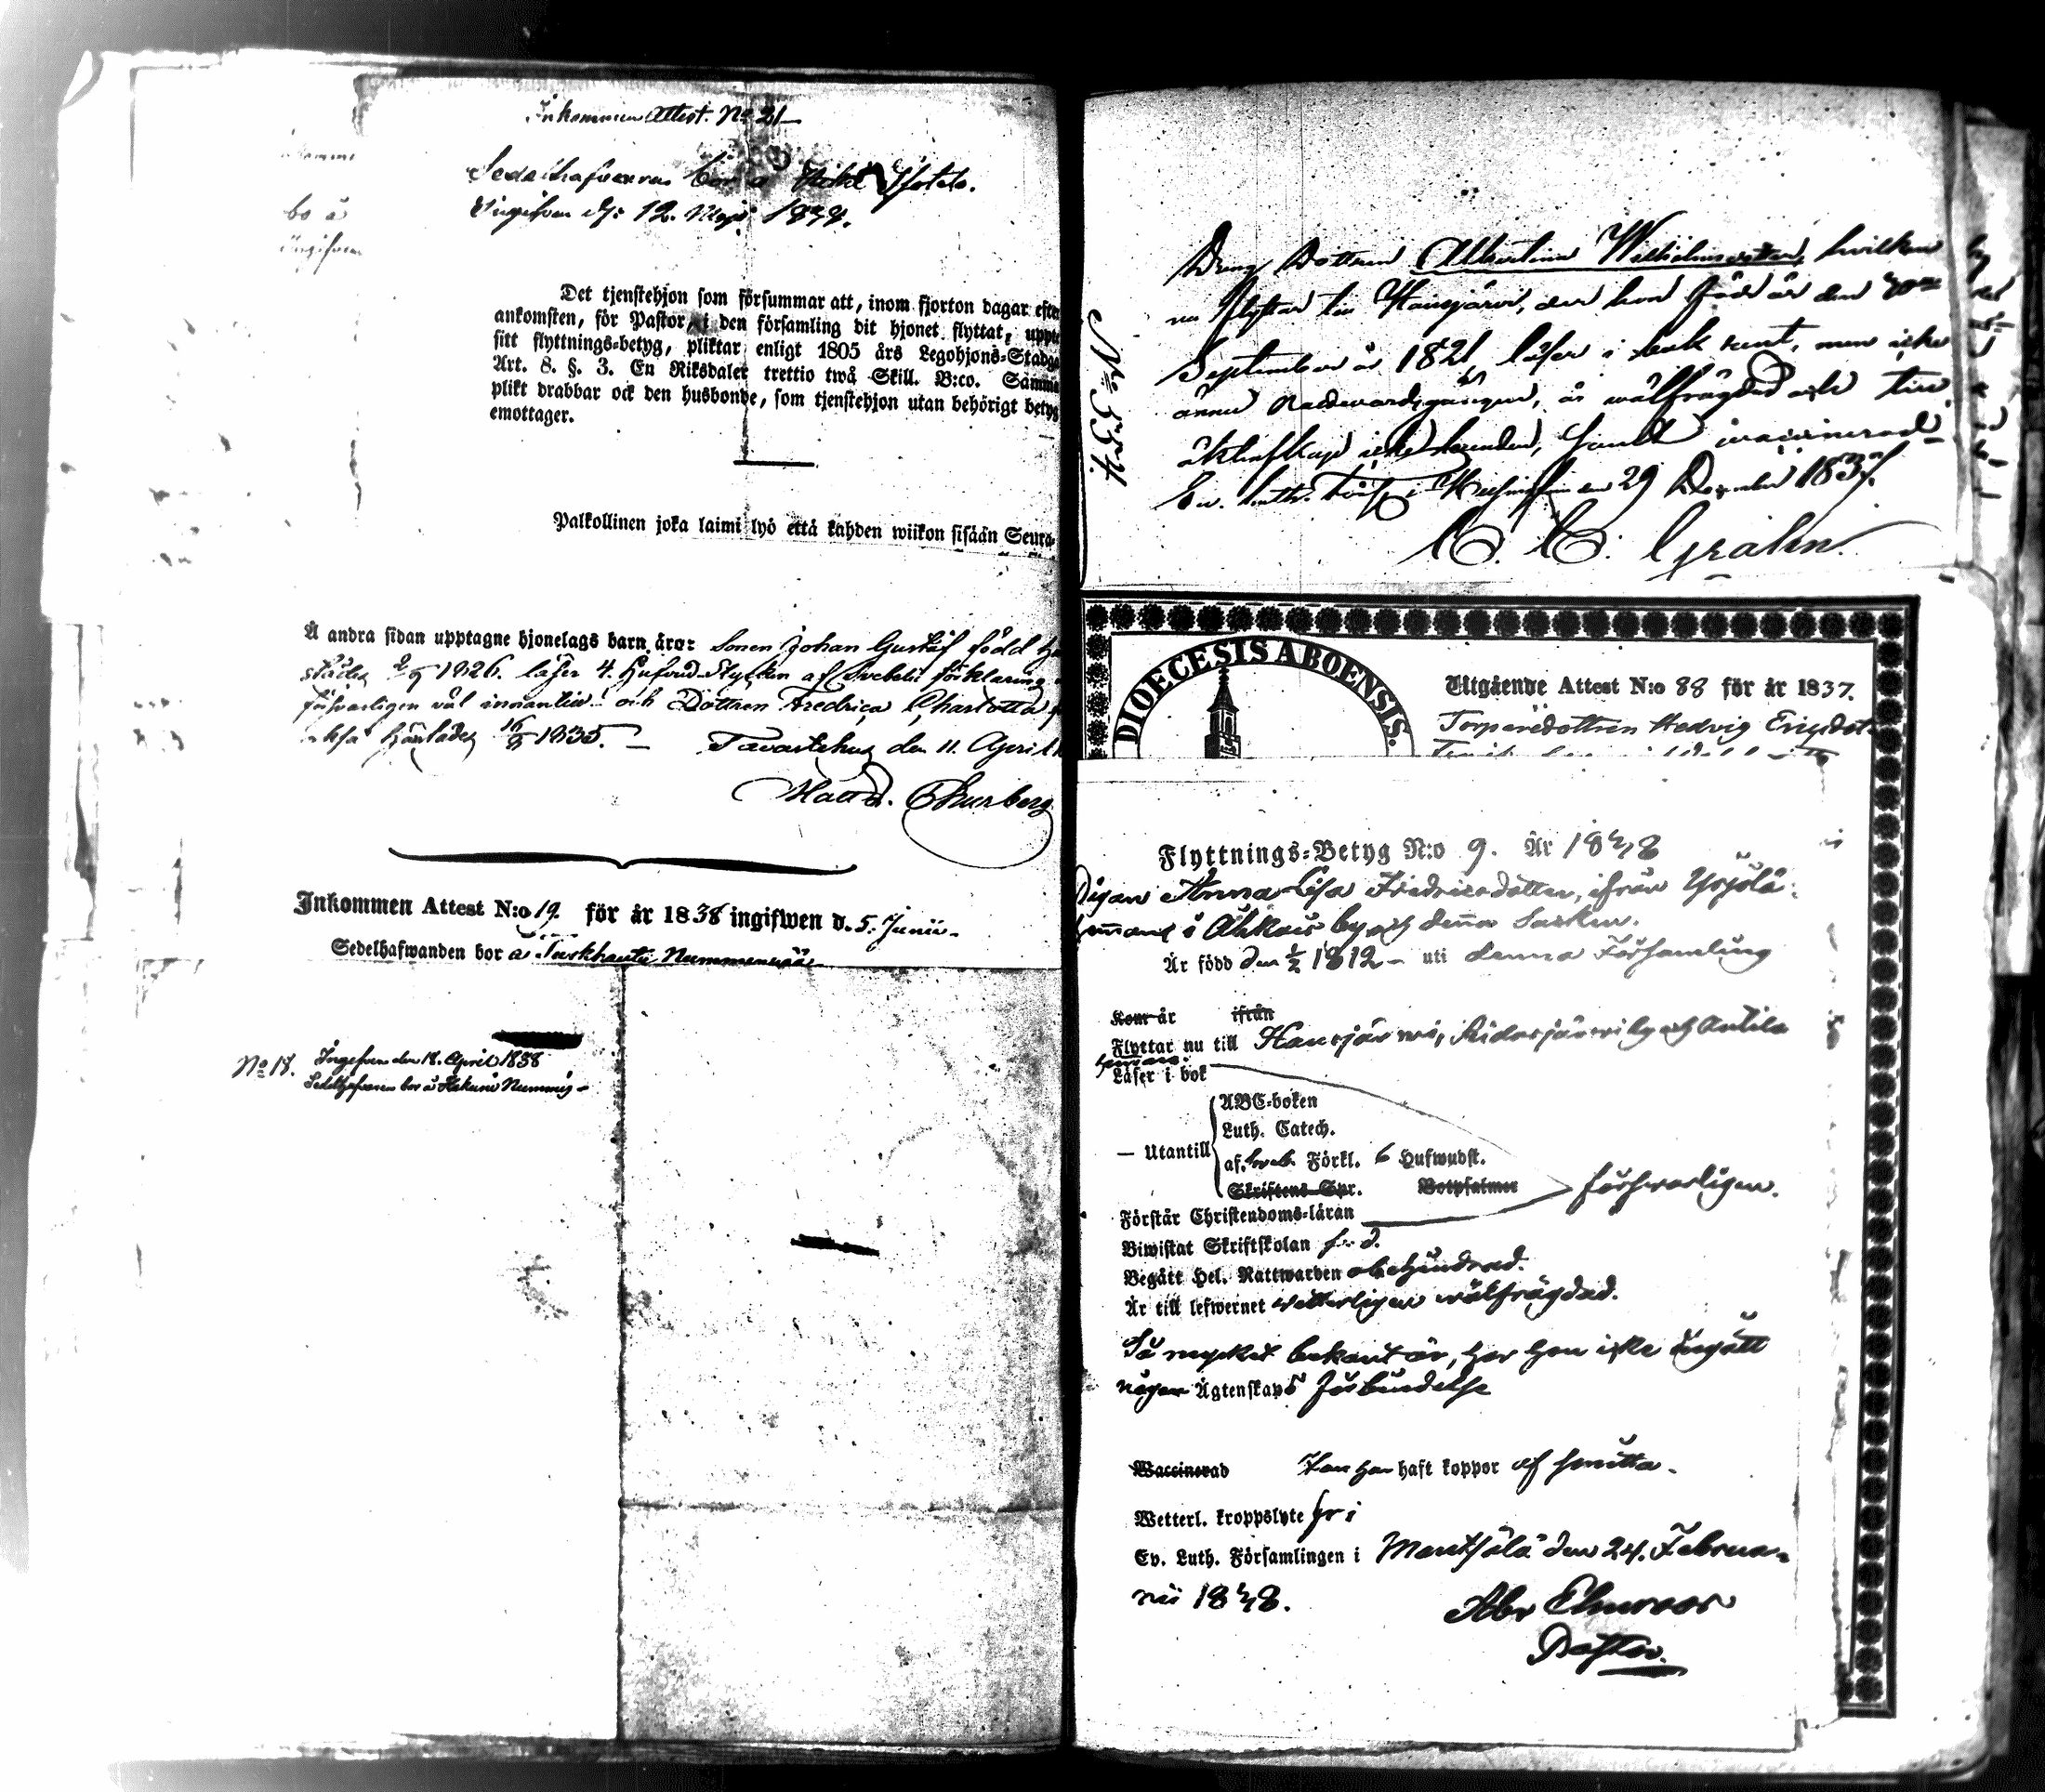 Inkommen Attest. No 21
Sedelhafvaren bor å
Ingifven d. 12. Maji 1838.
Det tjenstehjon som försummar att, inom fjorton dagar efte
ankomsten, för Pastor i den församling dit hjonet flyttat, uppt
sitt flyttnings=betyg, pliktar enligt 1805 års Legohjons=Stadg
Art. 8. §. 3. En Riksdaler trettio twå Skill. B:co. Samma
plikt drabbar ock den husbonde, som tjenstehjon utan behörigt betyg
emottager.
Palkollinen joka laimi lyö että kahden wiikon sisään Seura
Å andra sidan upptagne hjonelags barn äro: Sonen Johan Gustaf född
städes 1826. läser 4. Hufvud-Stycken af Svebelii förklaring
försvarligen väl innantill och Dottren Fredrica Charlotta
också härstädes 1835. — Tavastehus den 11. April
Inkommen Attest N:o 19. för år 1838 ingifwen d. 5. Junii
Sedelhafwanden bor å Turkhauta
No 18. Ingifven den 18. April 1838
Sedelhafvaren bor å Hakuni Nummis
No 554.
Dottren Albertina Wilhelmina, hvilken
nu flyttar till Hausjärvi, der hon född är den
September år 1821, läser i bok rent, men icke
ännu nattvardsgången, är wälfrägdad och till
äktenskap icke bunden, samt vaccinerad
Ev. Luth. 29 December 1837.
C. C. Grahn.
DIOECESIS ABOENSIS.
Utgående Attest N:o 88 för år 1837.
Torparedottren Hedvig Ericsdot
Flyttnings=Betyg N:o 9. År 1838
Pigan Anna Lisa Fridricsdotter, ifrån
i by och denna Socken.
Är född den 1/2 1812 — uti denna Församling
Kom år ifrån
Flyttar nu till Hausjärvi, Ridasjärvi by och Antila
hemman.
Läser i bok
— Utantill
ABC=boken
Luth. Catech.
af Sveb. Förkl. 6 Hufwudst.
Skriftens Spr. Botpsalmer
försvarligen.
Förstår Christendoms=läran
Biwistat Skriftskolan
Begått Hel. Nattwarden obehindrad.
Är till lefwernet wetterligen wälfrägdad.
Så mycket bekant är, har hon icke ingått
någon Ägtenskaps förbindelse
Waccinerad Hon har haft koppor af smitta.
Wetterl. kroppslyte fri
Ev. Luth. Församlingen i Mentsälä den 24. Februa=
rii 1838.
Pastor.